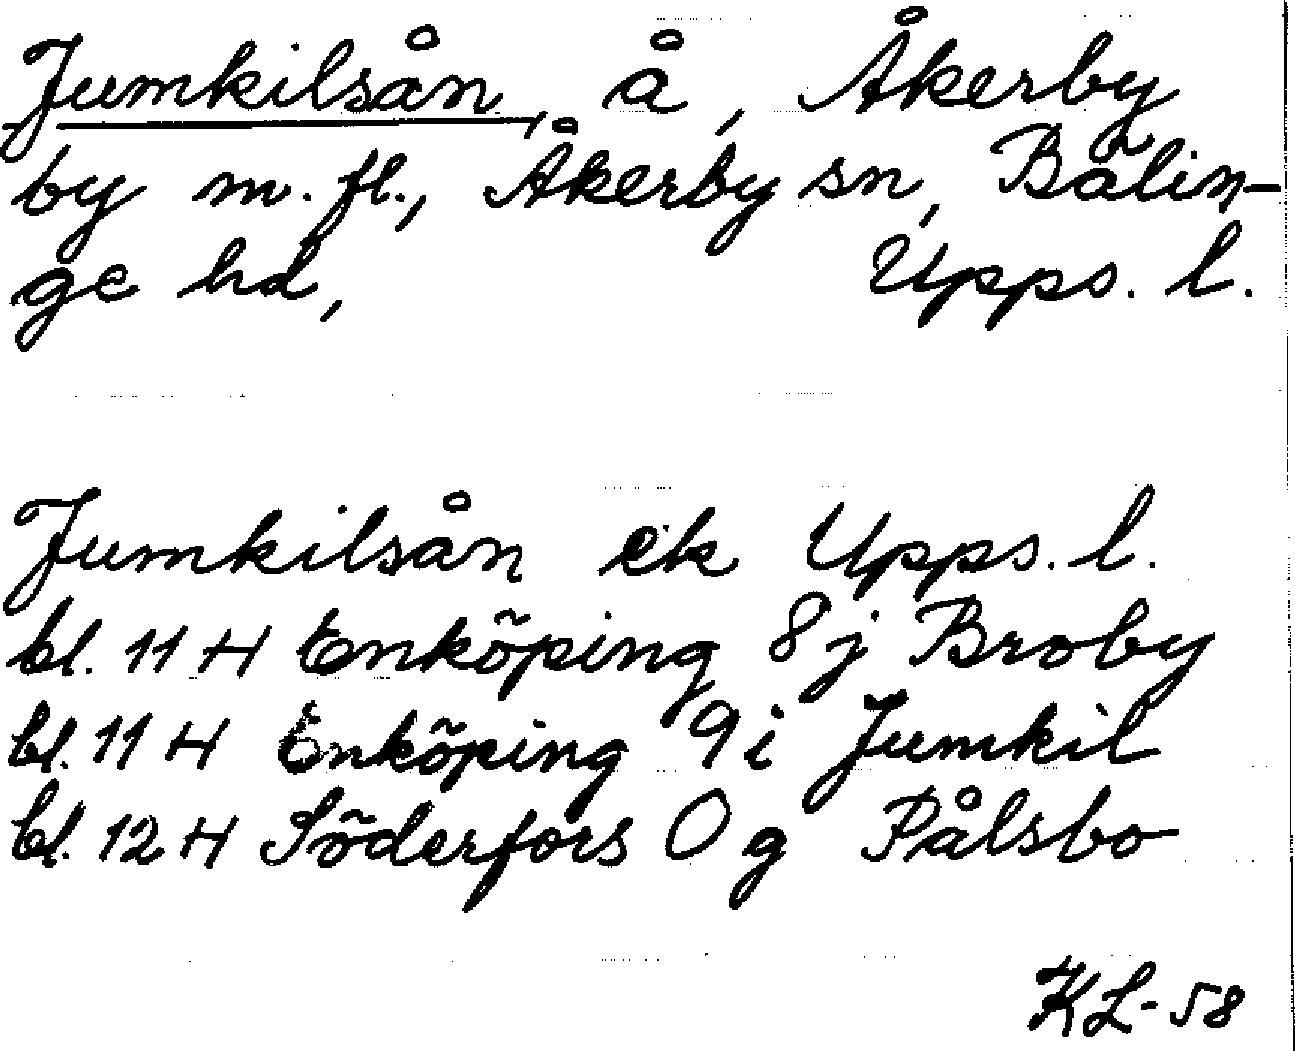 Jumkilsån, å, Åkerby
by m.fl., Åkerby sn, Bälin-
ge hd, Upps. l.
Jumkilsån ek Upps. l.
bl. 11 H Enköping 8j Broby
bl. 11 H Enköping 9i Jumkil
bl. 12 H Söderfors 0g Pålsbo
KL-58